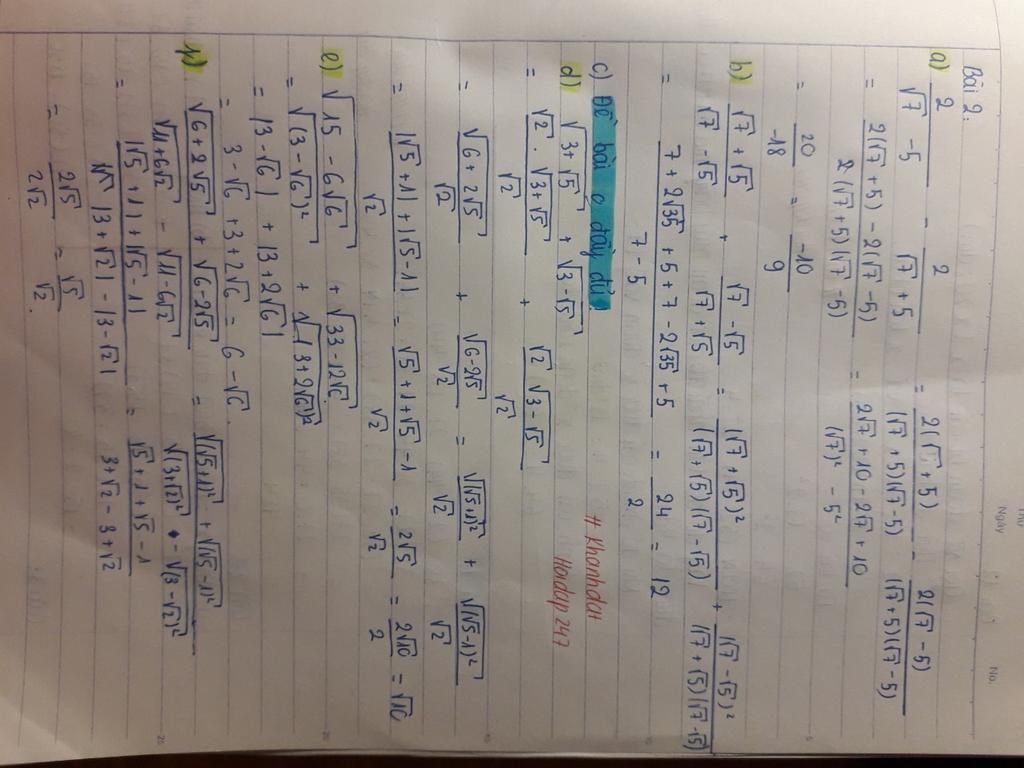 Thứ
Ngày No.
Bài 2:
a) 2/(√7 - 5) - 2/(√7 + 5) = 2(√7 + 5)/((√7 + 5)(√7 - 5)) - 2(√7 - 5)/((√7 + 5)(√7 - 5))
= (2(√7 + 5) - 2(√7 - 5))/((√7 + 5)(√7 - 5)) = (2√7 + 10 - 2√7 + 10)/((√7)² - 5²)
= 20/-18 = -10/9
b) (√7 + √5)/(√7 - √5) + (√7 - √5)/(√7 + √5) = (√7 + √5)²/((√7 + √5)(√7 - √5)) + (√7 - √5)²/((√7 + √5)(√7 - √5))
= (7 + 2√35 + 5 + 7 - 2√35 + 5)/(7 - 5) = 24/2 = 12
c) Đề bài o đầy đủ
# Khanhdat
Hoidap247
d) √(3 + √5) + √(3 - √5)
= (√2 . √(3 + √5))/√2 + (√2 √(3 - √5))/√2
= √(6 + 2√5)/√2 + √(6 - 2√5)/√2 = √((√5 + 1)²)/√2 + √((√5 - 1)²)/√2
= (|√5 + 1| + |√5 - 1|)/√2 = (√5 + 1 + √5 - 1)/√2 = 2√5/√2 = 2√10/2 = √10
e) √(15 - 6√6) + √(33 - 12√6)
= √((3 - √6)²) + √((3 + 2√6)²)
= |3 - √6| + |3 + 2√6|
= 3 - √6 + 3 + 2√6 = 6 - √6
f) (√(6 + 2√5) + √(6 - 2√5))/(√(11 + 6√2) - √(11 - 6√2)) = (√((√5 + 1)²) + √((√5 - 1)²))/(√((3 + √2)²) - √((3 - √2)²))
= (|√5 + 1| + |√5 - 1|)/(|3 + √2| - |3 - √2|) = (√5 + 1 + √5 - 1)/(3 + √2 - 3 + √2)
= 2√5/2√2 = √5/√2